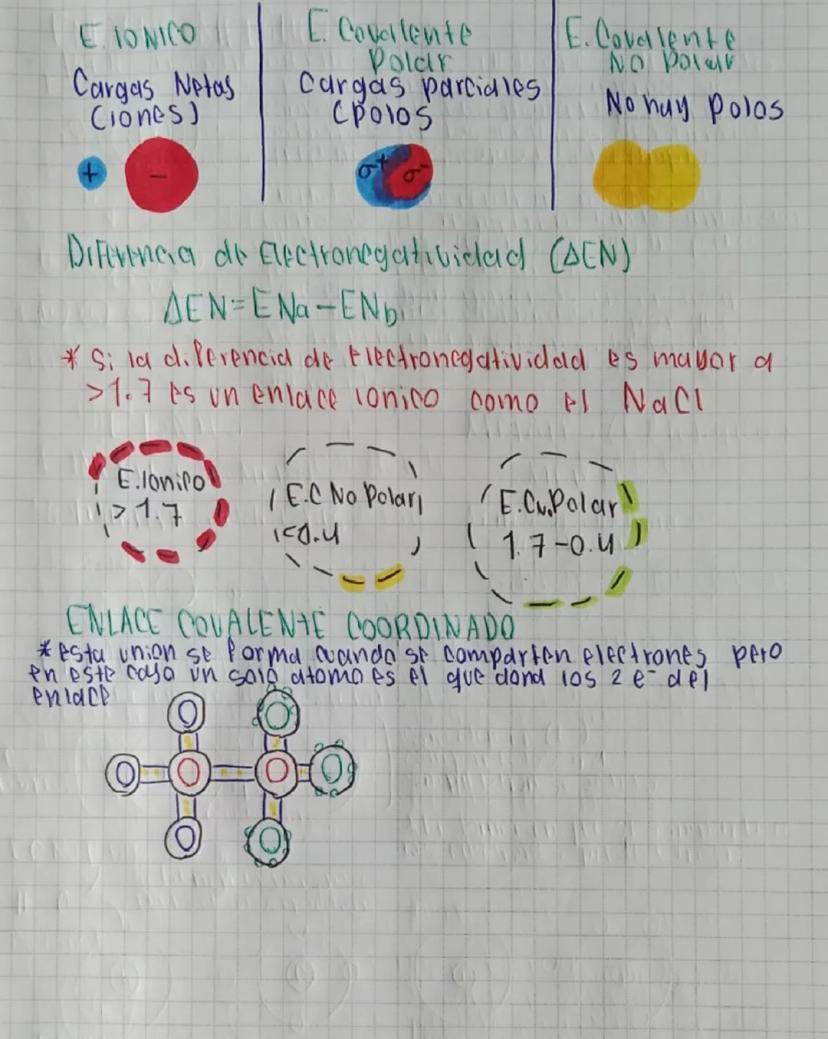 E. IONICO
Cargas Netas
(iones)
+ -
E. Covalente
Polar
Cargas parciales
(polos
σ+ σ-
E. Covalente
No Polar
No hay polos
Diferencia de Electronegatividad (ΔEN)
ΔEN=ENa-ENb
* Si la diferencia de Electronegatividad es mayor a
>1.7 es un enlace ionico como el NaCl
E.Ionico
> 1.7
E.C No Polar
<0.4
E.Cv.Polar
1.7-0.4
ENLACE COVALENTE COORDINADO
* esta union se forma cuando se comparten electrones pero
en este caso un solo atomo es el que dona los 2 e- del
enlace